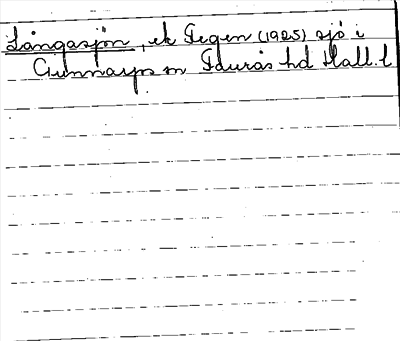 Långasjön, ek Tegen (1925) sjö i
Gunnarps sn Faurås hd Hall. l